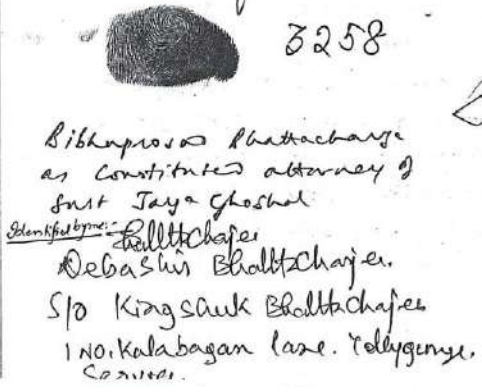 3258
Bibhaprosad Bhattacharya
as constituted attorney of
Smt Jaya Ghoshal
Identified by me:- Bhattchajee
Debashis Bhattchajee.
S/o Kingshuk Bhattchajee
1 No. Kalabagan Lane. Tollygunge.
Service.